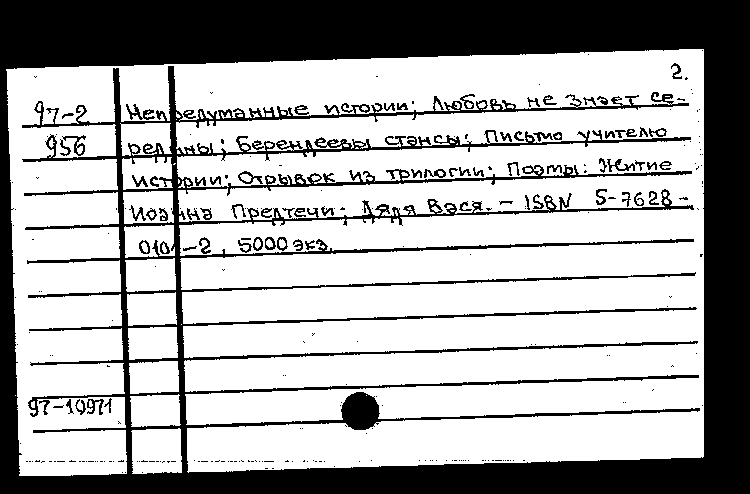 2.
97-2 Непредуманные истории; Любовь не знает се-
956 редины; Берендеевы стансы; Письмо учителю
истории; Отрывок из трилогии; Поэмы: Житие
Иоанна Предтечи; Дядя Вася. - ISBN 5-7628-
0101-2, 5000 экз.
97-10971